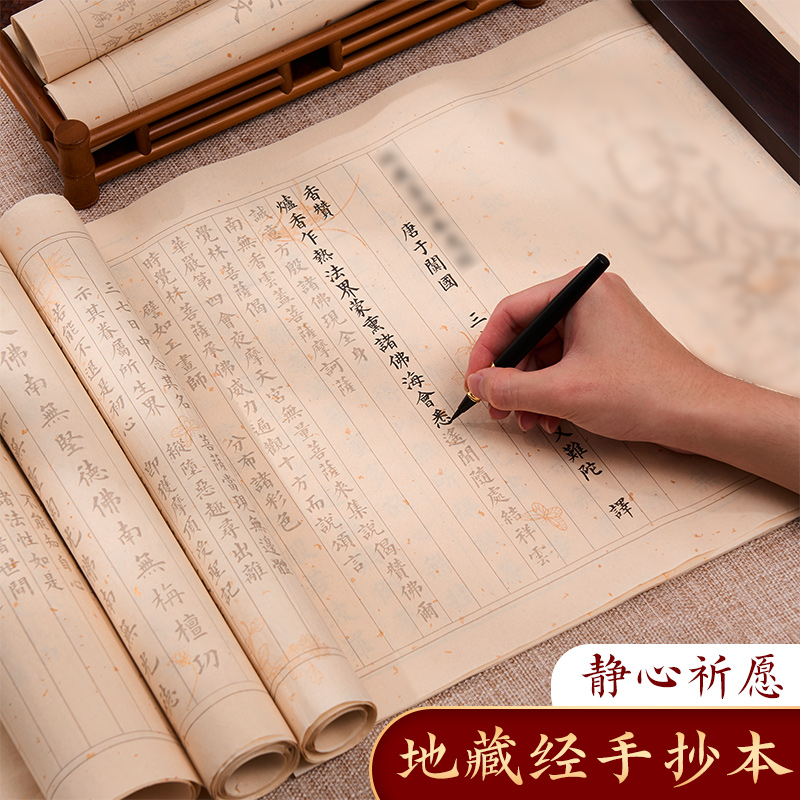 唐于闐國 三
叉難陀 譯
香贊
爐香乍熱法界蒙熏諸佛海會悉遙聞隨處結祥雲
誠意方殷諸佛現全身
南無香雲蓋菩薩摩訶薩
覺林菩薩偈
華嚴第四會夜摩天宮無量菩薩來集說偈贊佛爾
時覺林菩薩承佛威力遍觀十方而說頌言
譬如工畫師 分布諸彩色
三七日中念其名 菩薩當現無邊體
示其眷屬所生界 縱墮惡趣尋出離
若能不退是初心 即獲摩頂受聖記
佛南無堅德佛南無栴檀功
法性如是
世間
静心祈愿
地藏经手抄本